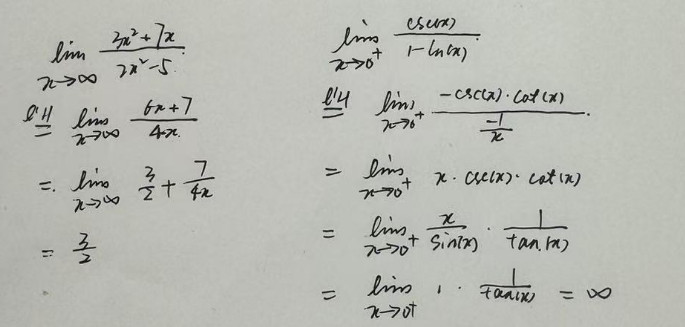 lim_{x→∞} \frac{3x²+7x}{2x²-5}
\overset{l'H}{=} lim_{x→∞} \frac{6x+7}{4x}
= lim_{x→∞} \frac{3}{2} + \frac{7}{4x}
= \frac{3}{2}
lim_{x→0⁺} \frac{csc(x)}{1-ln(x)}
\overset{l'H}{=} lim_{x→0⁺} \frac{-csc(x)·cot(x)}{\frac{-1}{x}}
= lim_{x→0⁺} x·csc(x)·cot(x)
= lim_{x→0⁺} \frac{x}{sin(x)} · \frac{1}{tan(x)}
= lim_{x→0⁺} 1 · \frac{1}{tan(x)} = ∞